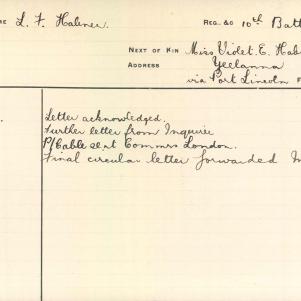 RE L. F. Habner. REG. &c 10th Batt
NEXT OF KIN Miss Violet E. Hab
ADDRESS Yeelanna
via Port Lincoln F
Letter acknowledged.
Further letter from Inquirer
P/Cable sent Commrs London.
Final circular letter forwarded